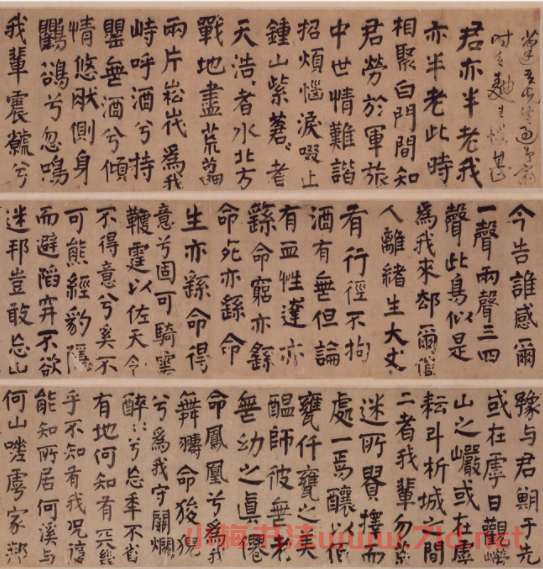 君亦半老我
亦半老此時
相聚白門間知
君勞於軍旅
中世情難諧
招煩惱淚啜止
鍾山紫蒼者
天浩者水北方
戰地盡荒
兩片為我
峙呼酒兮持
罌無酒兮傾
情悠然側身
鸜鵒兮忽鳴
我輩震虩兮
今告誰感爾
一聲兩聲三四
聲此鳥似是
為我來爾
人離緒生大丈
有行徑不拘
酒有無但論
有血性達亦
繇命窮亦繇
命死亦繇命
生亦繇命得
意兮固可騎雲
鞭霆以佐天令
不得意兮奚不
可熊經豹隱
而避穽不欲
迷邦豈敢忘山
豫與君朝于先
或在日觀
山之巘或在虛
耘斗析城間
二者我輩勿
迷所擇而
處一焉釀以佰
甕仟甕之美
醞師彼無老
無幼之真僊
命鳳凰兮為我
舞命狻猊
兮為我守關爛
醉兮忘年不省
有地何知有
乎不知有我況
能知所居何溪與
何山家
小梅书法www.